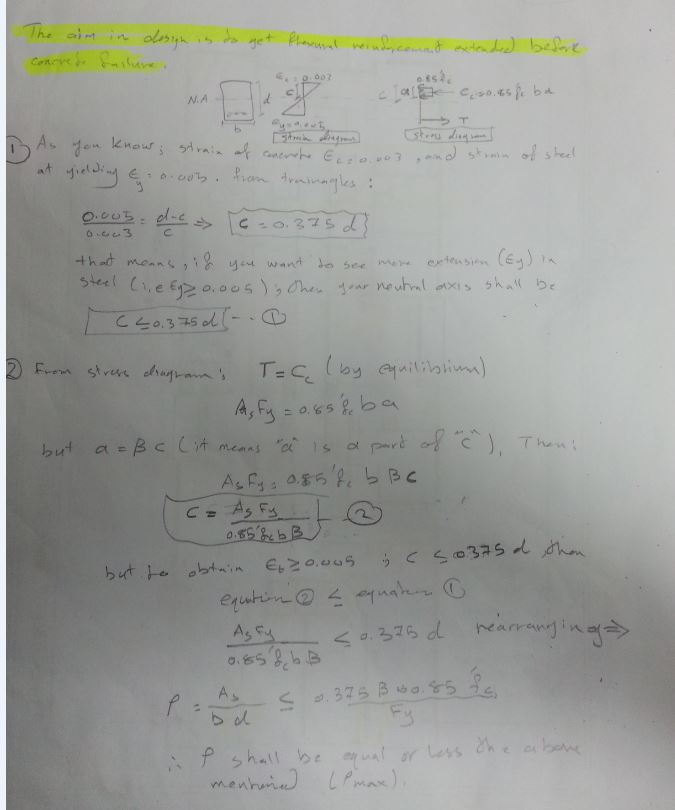 The aim in design is to get flexural reinforcement extended before
concrete failure.
N.A d b
εc = 0.003 c
εy = 0.005
strain diagram
0.85 f'c
c a Cc = 0.85 f'c ba
T
stress diagram
① As you know; strain of concrete εc = 0.003, and strain of steel
at yielding εy = 0.005. from trainagles :
0.005/0.003 = d-c/c ⇒ c = 0.375 d
that means, if you want to see more extension (εy) in
steel (i.e εy ≥ 0.005); then your neutral axis shall be
c ≤ 0.375 d -- ①
② From stress diagram; T = Cc (by equilibrium)
As Fy = 0.85 f'c b a
but a = β c (it means "a" is a part of "c"), Then:
As Fy = 0.85 f'c b β c
c = As Fy / 0.85 f'c b β ②
but to obtain εt ≥ 0.005 ; c ≤ 0.375 d then
equation ② ≤ equation ①
As Fy / 0.85 f'c b β ≤ 0.375 d rearranging ⇒
ρ = As / b d ≤ 0.375 β 0.85 f'c / Fy
∴ ρ shall be equal or less the above
mentioned (ρmax).